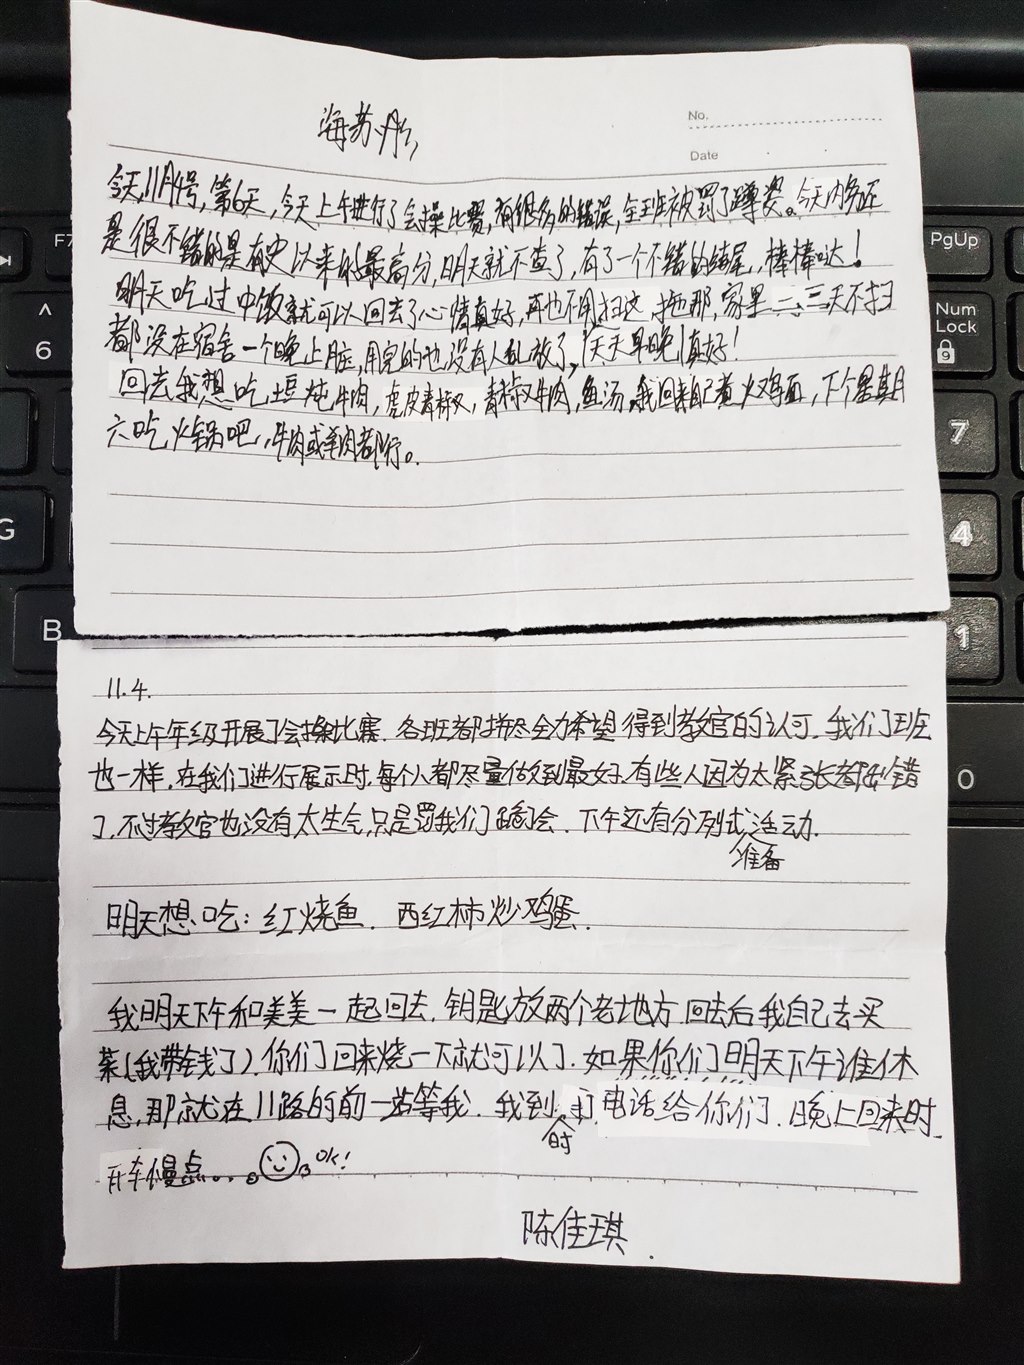 No.
Date
海苏彤
今天,11月4号,第6天,今天上午进行了会操比赛,有很多的错误,全班被罚了蹲姿。今天内务还
是很不错的是有史以来的最高分,明天就不查了,有了一个不错的结尾,棒棒哒!
明天吃过中饭就可以回去了心情真好,再也不用扫这拖那,家里二、三天不扫
都没在宿舍一个晚上脏,用完的也没有人乱放了,天天早晚真好!
回去我想吃土豆炖牛肉,虎皮青椒,青椒牛肉,鱼汤,我回来自己煮火鸡面,下个星期
六吃火锅吧,牛肉或羊肉都行。
11.4.
今天上午年级开展了会操比赛.各班都拼尽全力希望得到教官的认可.我们班
也一样.在我们进行展示时,每个人都尽量做到最好.有些人因为太紧张都出错
了.不过教官也没有太生气,只是罚我们蹲会.下午还有分列式活动.
准备
明天想吃:红烧鱼.西红柿炒鸡蛋.
我明天下午和美美一起回去.钥匙放两个老地方.回去后我自己去买
菜(我带钱了).你们回来烧一下就可以了.如果你们明天下午谁休
息,那就在11路的前一站等我.我到打电话给你们.晚上回来时
时
开车慢点...OK!
陈佳琪.
F7
6
G
B
PgUp
Num
Lock
9
7
4
1
0